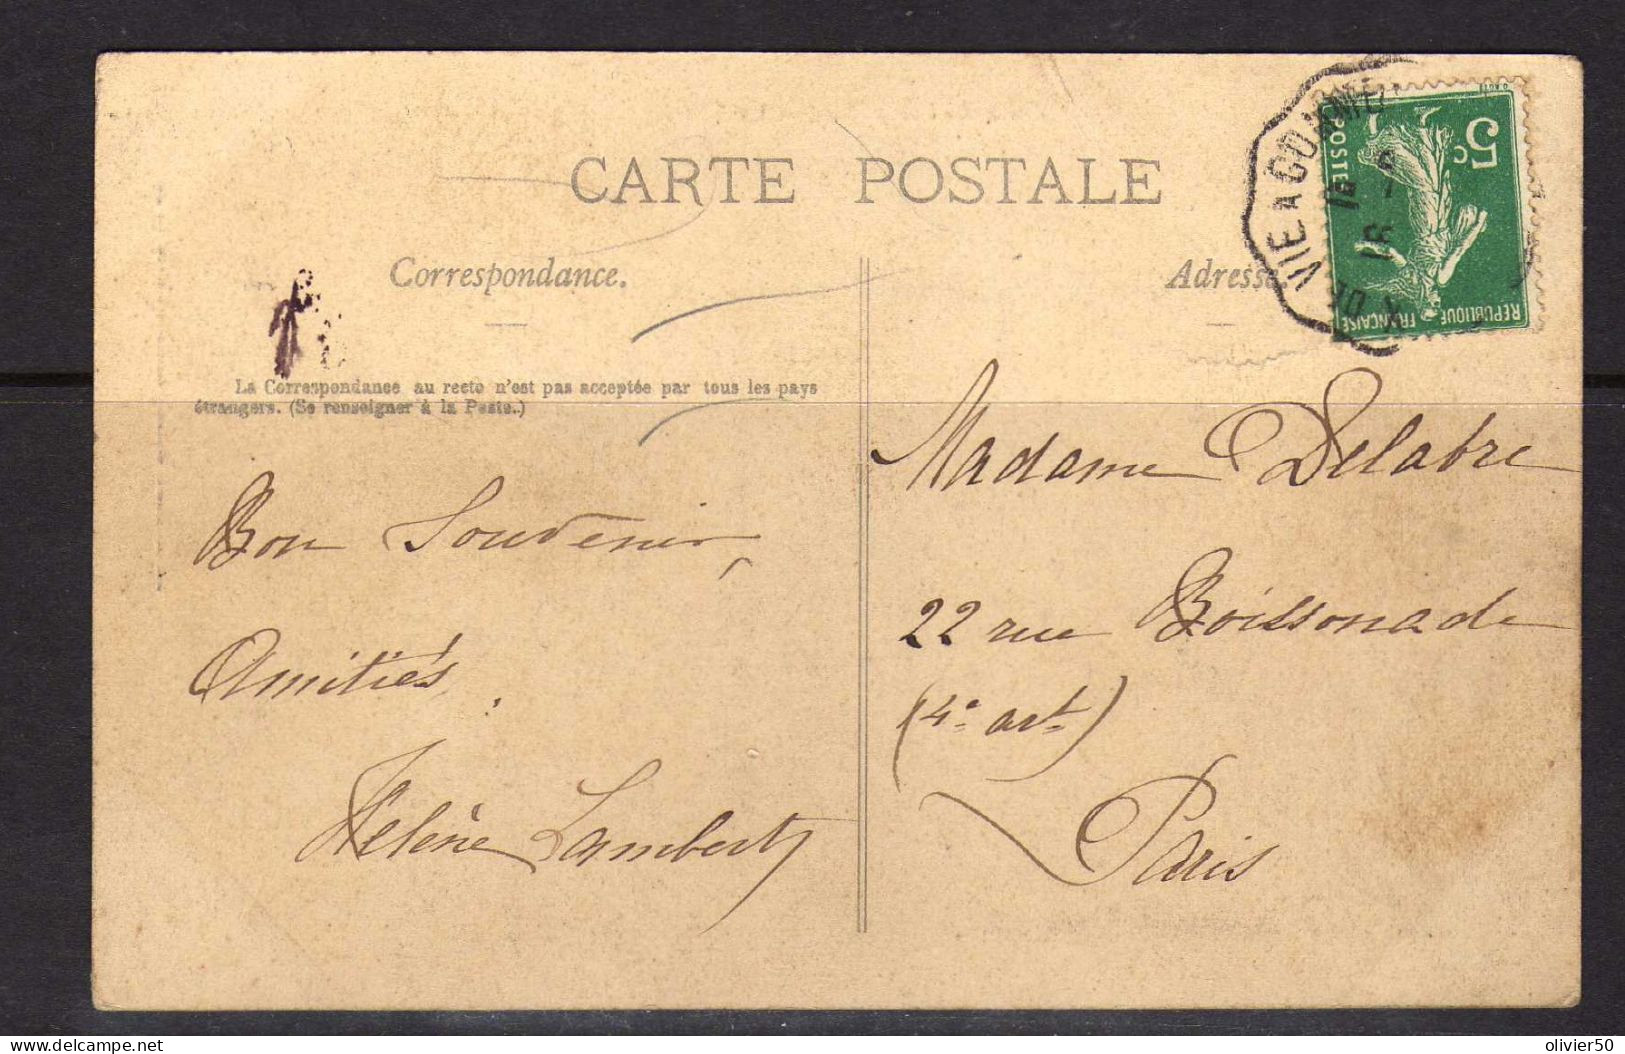 CARTE POSTALE
Correspondance.
Adresse.
La Correspondance au recto n'est pas acceptée par tous les pays
étrangers. (Se renseigner à la Poste.)
Bon Souvenir,
Amitiés.
Helène Lambert
Madame Delabre
22 rue Boissonade
(4e art)
Paris
5c
POSTES
REPUBLIQUE FRANÇAISE
delcampe.net
olivier50